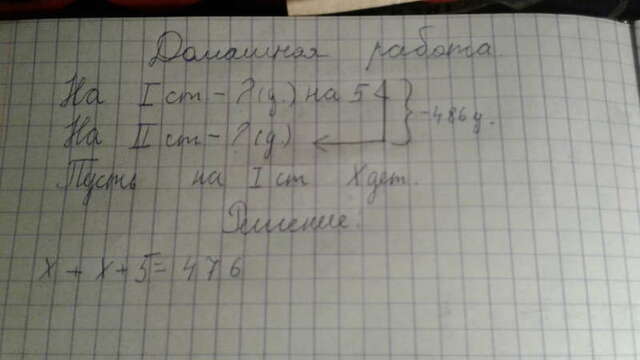 Домашная работа
На I ст - ? (д.) на 54
На II ст - ? (д) - 486 д.
Пусть на I ст X дет.
Решение:
x + x + 5 = 476